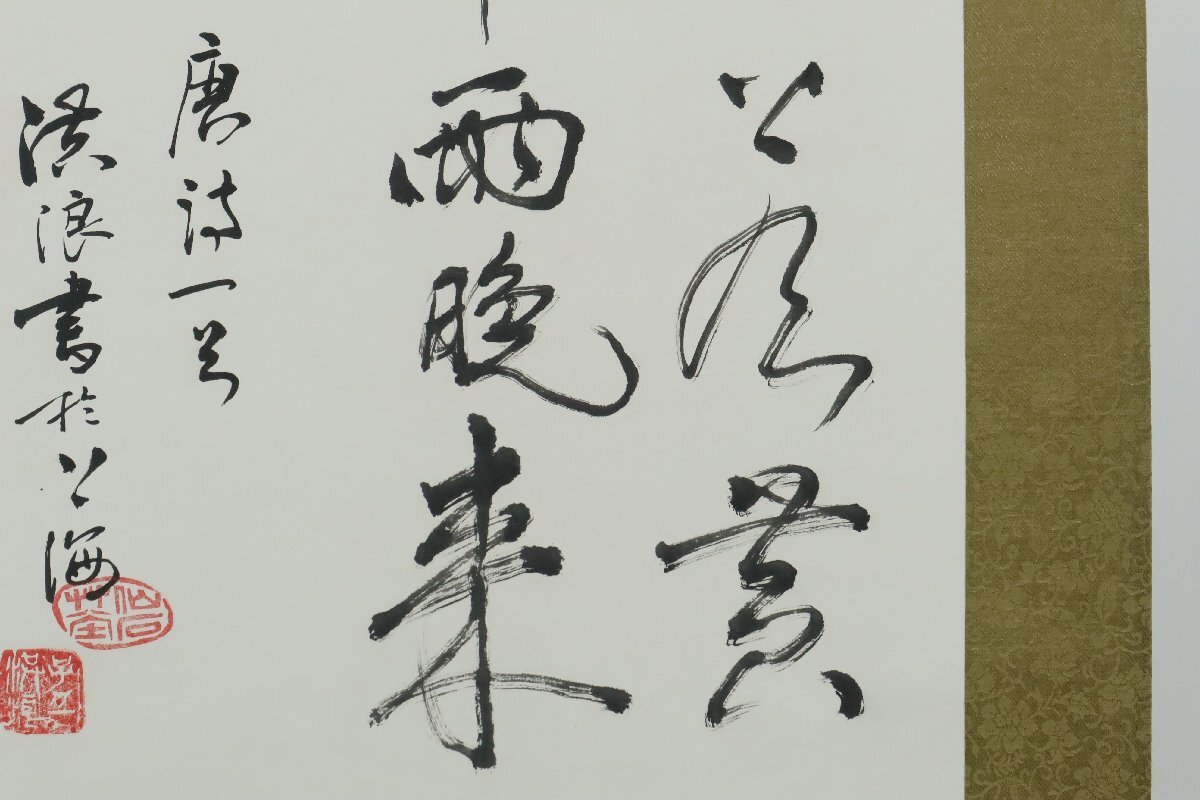 上有黄
雨晚來
唐詩一首
洪浪書於上海